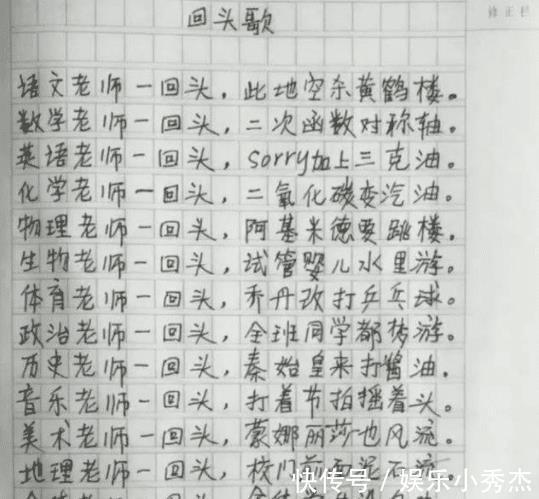 回头歌
修正栏
语文老师一回头，此地空杀黄鹤楼。
数学老师一回头，二次函数对称轴。
英语老师一回头，sorry加上三克油。
化学老师一回头，二氧化碳变汽油。
物理老师一回头，阿基米德要跳楼。
生物老师一回头，试管婴儿水里游。
体育老师一回头，乔丹改打乒乓球。
政治老师一回头，全班同学都梦游。
历史老师一回头，秦始皇来打酱油。
音乐老师一回头，打着节拍摇着头。
美术老师一回头，蒙娜丽莎也风流。
地理老师一回头，校门前
快传号/娱乐小秀杰